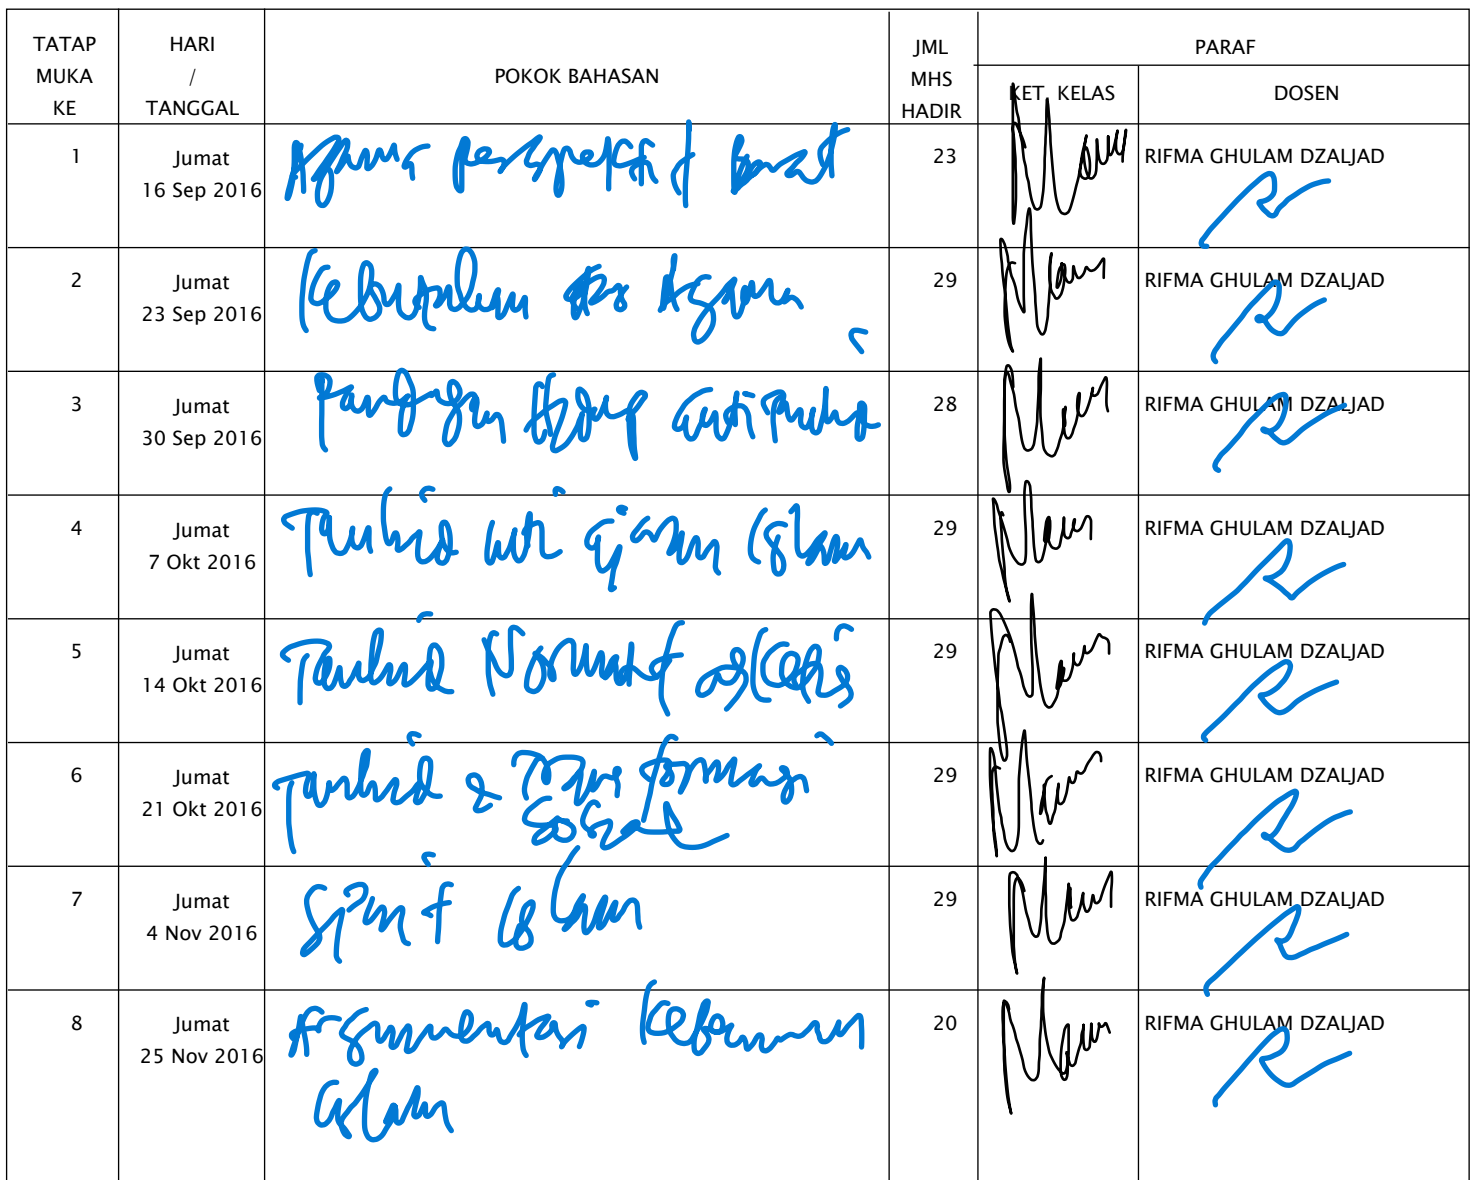 TATAP MUKA KE HARI / TANGGAL POKOK BAHASAN JML MHS HADIR PARAF
KET. KELAS DOSEN
1 Jumat 16 Sep 2016 Agama perspektif barat 23 RIFMA GHULAM DZALJAD
2 Jumat 23 Sep 2016 Kebutuhan Agama 29 RIFMA GHULAM DZALJAD
3 Jumat 30 Sep 2016 Pandangan Hidup anti Tauhid 28 RIFMA GHULAM DZALJAD
4 Jumat 7 Okt 2016 Tauhid inti ajaran Islam 29 RIFMA GHULAM DZALJAD
5 Jumat 14 Okt 2016 Tauhid Normatif 29 RIFMA GHULAM DZALJAD
6 Jumat 21 Okt 2016 Tauhid & Transformasi Sosial 29 RIFMA GHULAM DZALJAD
7 Jumat 4 Nov 2016 Islam 29 RIFMA GHULAM DZALJAD
8 Jumat 25 Nov 2016 Argumentasi Kebenaran Islam 20 RIFMA GHULAM DZALJAD